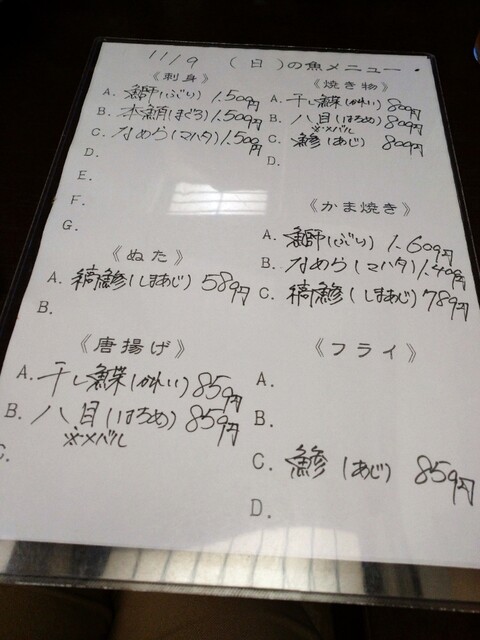 11/9 (日)の魚メニュー
《刺身》
A. 鰤(ぶり) 1.509円
B. 本鮪(まぐろ) 1.509円
C. なめら(マハタ) 1.509円
D.
E.
F.
G.
《焼き物》
A. 干し鰈(かれい) 809円
B. 八目(はちめ) 809円
※メバル
C. 鯵(あじ) 809円
D.
《かま焼き》
A. 鰤(ぶり) 1.609円
B. なめら(マハタ) 1.409円
C. 縞鯵(しまあじ) 789円
《ぬた》
A. 縞鯵(しまあじ) 589円
B.
《唐揚げ》
A. 干し鰈(かれい) 859円
B. 八目(はちめ) 859円
※メバル
C.
《フライ》
A.
B.
C. 鯵(あじ) 859円
D.